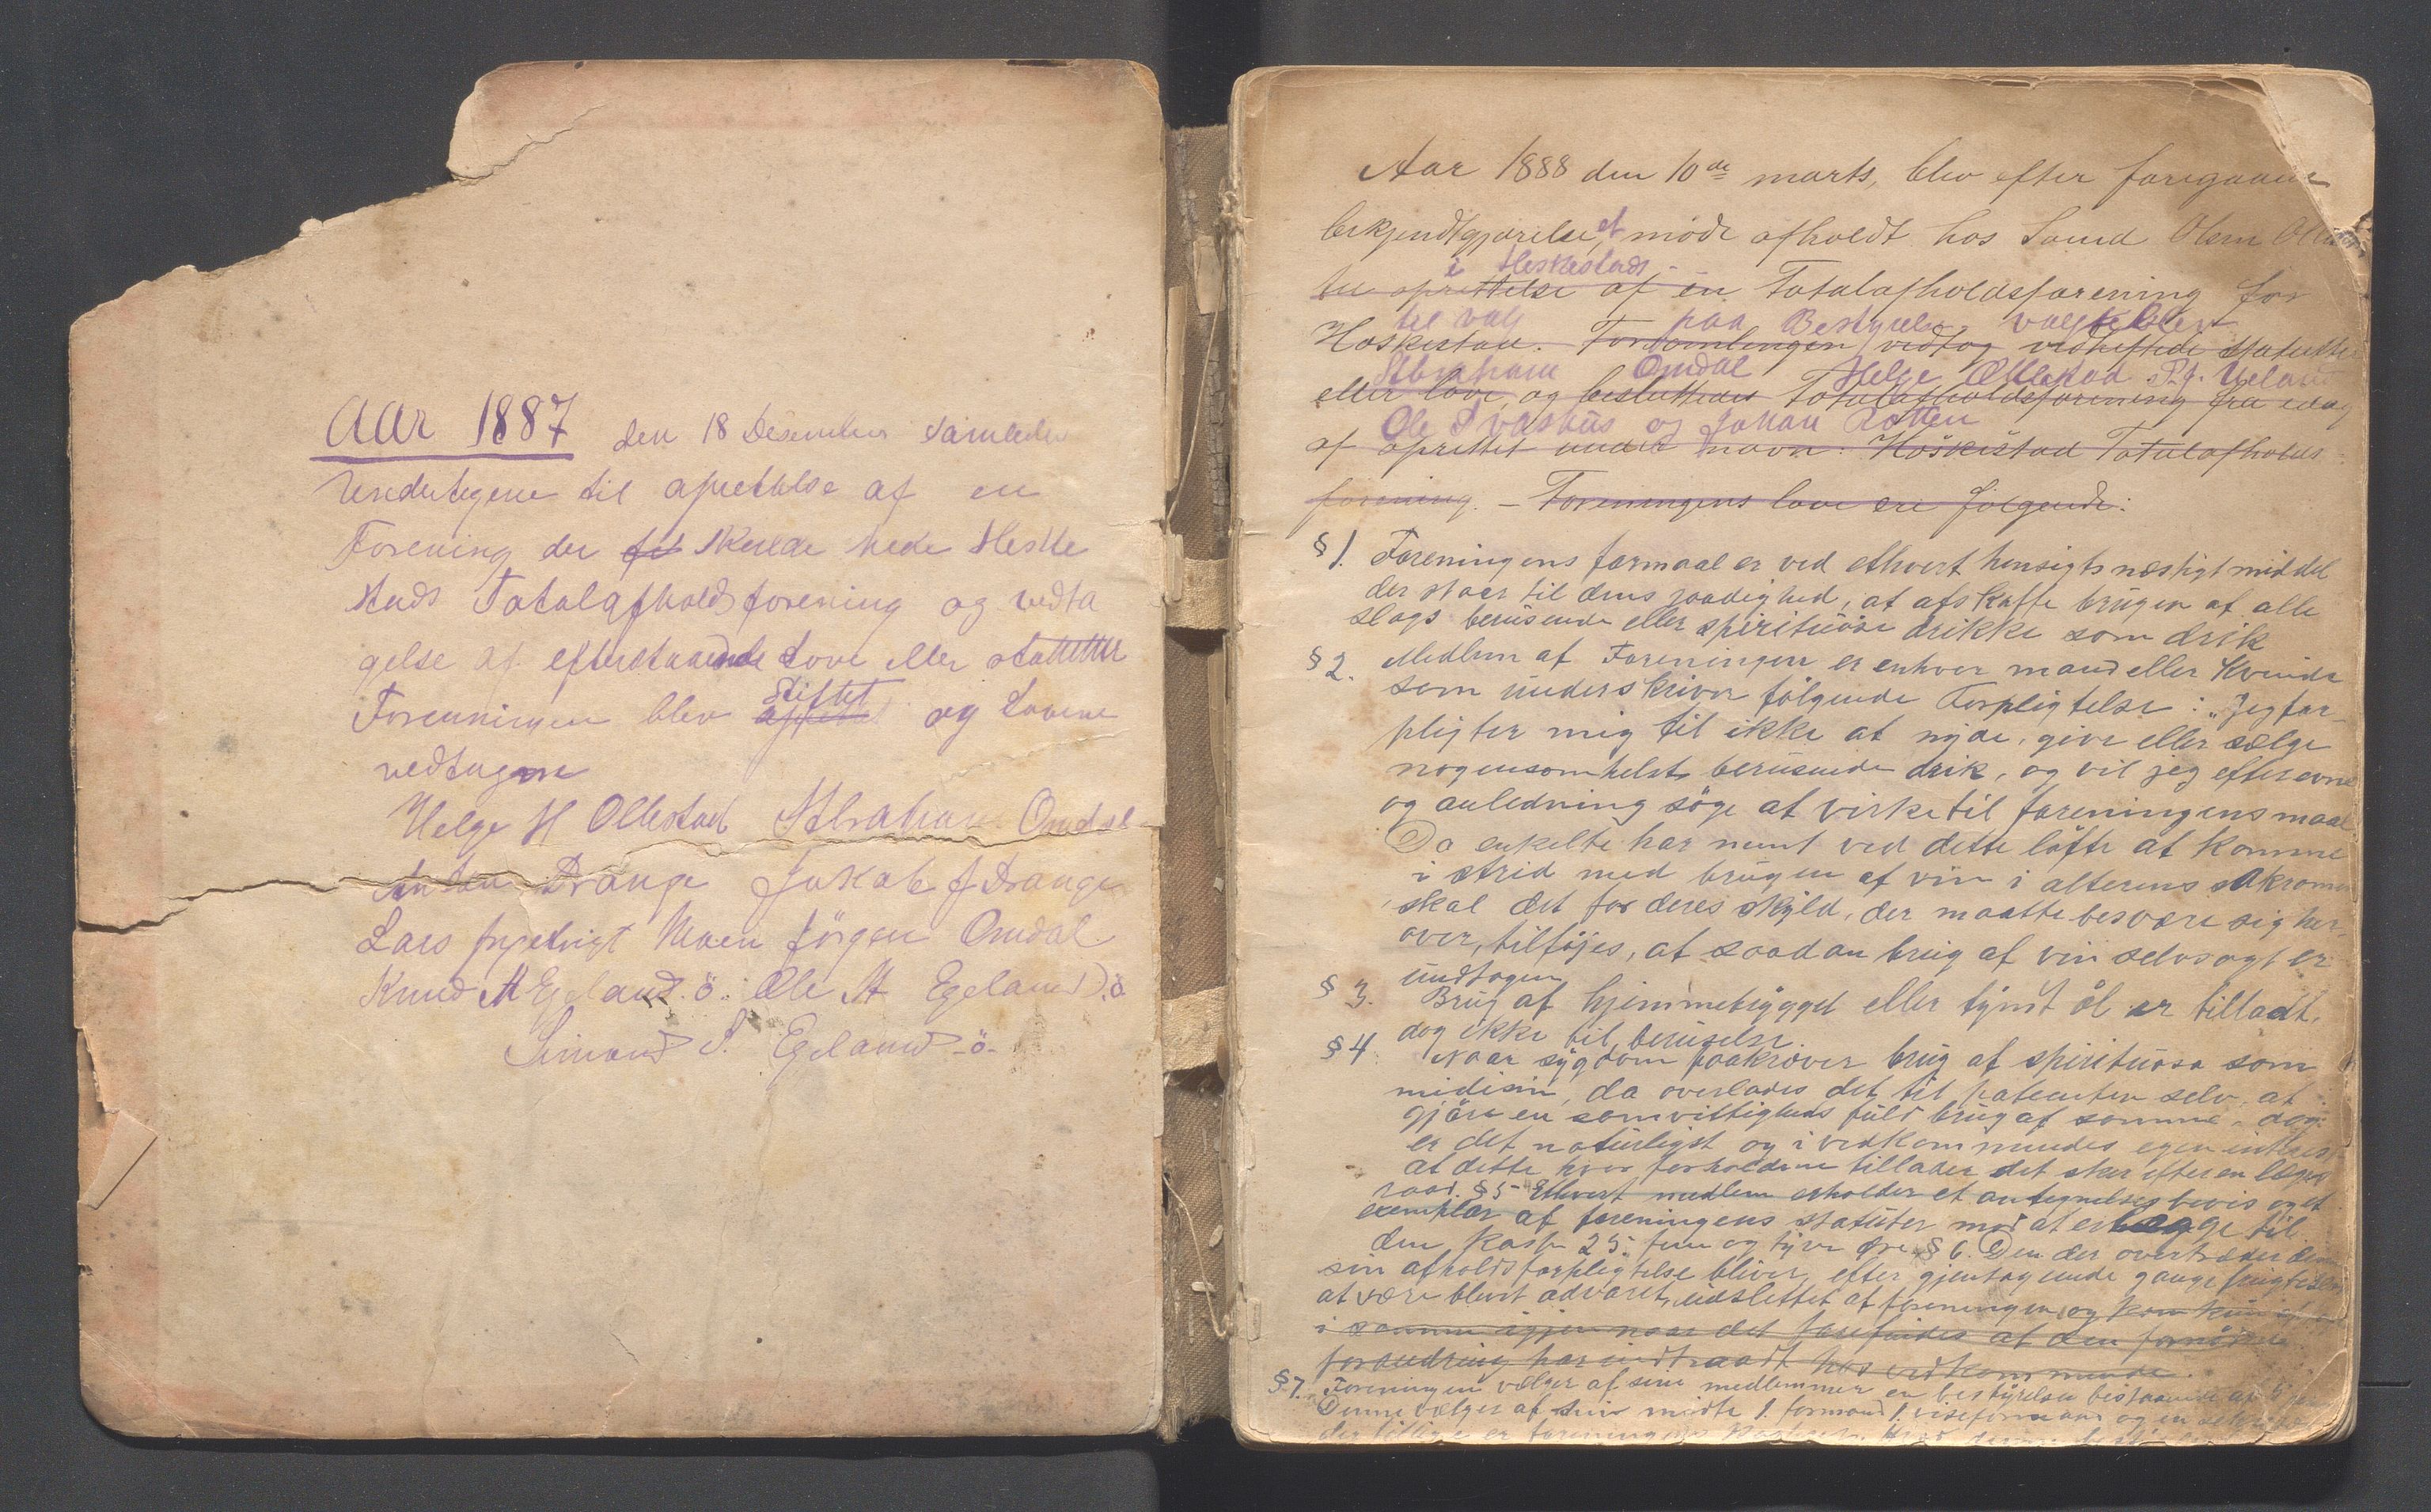 Aar 1887 den 18 Desember samledes
Undertegene til aprettelse af en
Forening der skulde hede Heske
stads Totalafholdsforening og vedta
gelse af efterstaaende Love eller statutter
Stiftet
Foreningen blev og Lovene
vedtagne
Helge H Ollestad Abraham Omdal
Anton Drange Jakob J Drange
Lars Moen Jörgen Omdal
Knud A Egeland. ö. Ole A Egeland. ö
Simond S. Egeland -ö-
Aar 1888 den 10de marts, blev efter foregaaen
bekjendtgjørelse, et møde afholdt hos Lauid Olsen
i Heskestads
til oprettelse af en Totalafholdsforening for
til valg paa Bestyrelse valgtes
Heskestad. Forsamlingen vedtog vedheftede statutter
Abraham Omdal Helge Ollestad P. J. Ueland
eller love, og besluttedes Totalafholdsforening fra idag
Ole Svashus og Johan Rotten
af oprettet under navn: Höskestad Totalafholds
forening. – Foreningens love ere følgende:
§ 1. Foreningens formaal er ved ethvert hensigtsmæsigt middel
der staar til dens raadighed, at afskaffe brugen af alle
slags berusende eller spirituöse drikke som drik
§ 2. Medlem af Foreningen er enhver mand eller kvinde
som underskriver følgende Forpligtelse: „Jeg for-
pligter mig til ikke at nyde, give eller sælge
nogensomhelst berusende drik, og vil jeg efter evne
og anledning söge at virke til foreningens maal.
Da enkelte har ment ved dette löfte at komme
i strid med brugen af vin i alterens sakramen
skal det for deres skyld, der maatte besvære sig her-
over, tilföjes, at saadan brug af vin selvsagt er
undtagen
§ 3. Brug af hjemmebrygget eller tynt öl er tilladt,
dog ikke til beruselse.
§ 4 Naar sygdom paakræver brug af spirituosa som
midisin, da overlades det til patienten selv, at
gjöre en samvittigheds fuld brug af samme, dog
er det naturligst og i vedkommendes egen intres
at dette hvor forholdene tillader det sker efter en læges
raad. § 5 Ethvert medlem erholder et antegnelses bevis og et
exemplar af foreningens statuter mod at erlægge til
den kasse 25 fem og tyve øre. § 6. Den der overtræder den
sin afholdsforpligtelse bliver, efter gjentagende gange frugtesløst
at være blevet advaret, udslettet af foreningen, og kan kun
i samme igjen naar det forefindes at den fornödne
forandring har indtraadt hos vedkommende.
§ 7. Foreningen vælger af sine medlemmer en bestyrelse bestaaende af 5
Denne vælger af sin midte 1. formand 1. viseformand og en
der tillige er foreningens